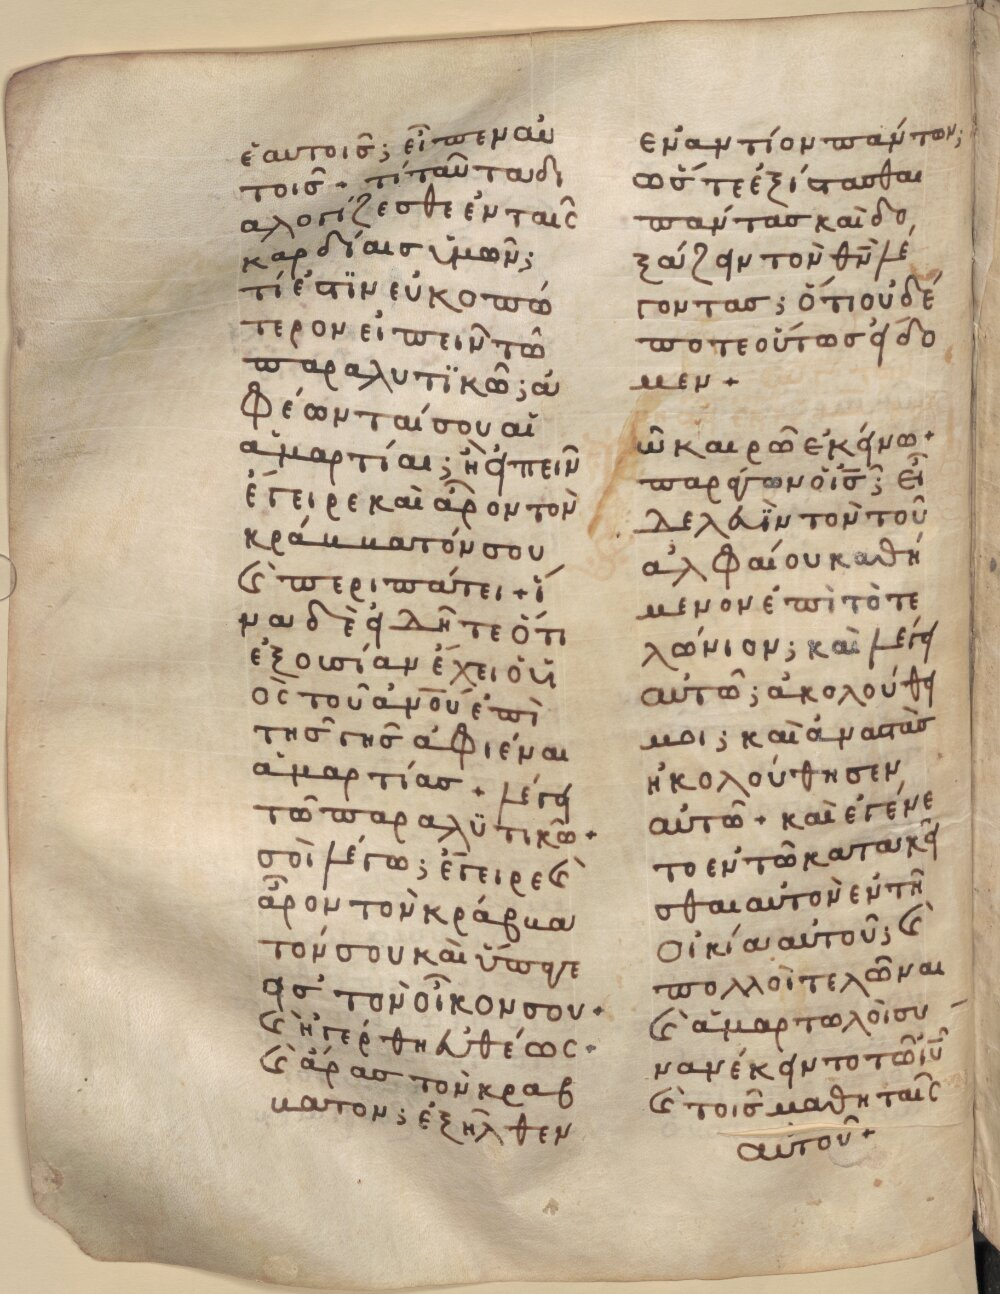 ἑαυτοῖς; εἶπεν αὐ
τοῖς + τί ταῦτα δι
αλογίζεσθε ἐν ταῖς
καρδίαις ὑμῶν;
τί ἐστὶν εὐκοπώ
τερον εἰπεῖν τῶ
παραλυτϊκῶ; ἀ
φέωνταί σου αἱ
ἁμαρτίαι; ἢ εἰπεῖν
ἔγειρε καὶ ἆρον τὸν
κράμματόν σου
καὶ περιπάτει + ἵ
να δὲ εἰδῆτε ὅτι
ἐξουσίαν ἔχει ὁ υἱ
ὸς τοῦ ἀνοῦ ἐπὶ
τῆς γῆς ἀφιέναι
ἁμαρτίας + λέγει
τῶ παραλϋτικῶ +
σοὶ λέγω; ἔγειρε καὶ
ἆρον τὸν κράβμα
τόν σου καὶ ὕπαγε
εἰς τὸν οἶκον σου +
καὶ ἠγέρθη εὐθέως
καὶ ἄρας τὸν κραβ
ματον; ἐξῆλθεν
ἐναντίον πάντων;
ὥστε ἐξίστασθαι
πάντας καὶ δο
ξάζειν τὸν θν̅ λέ
γοντας; ὅτι οὐδέ
ποτε οὕτως εἴδο
μεν +
ῶ καιρῶ ἐκείνω +
παράγων ὁ ις̅; εἶ
δε λευὶν τὸν τοῦ
ἀλφαίου καθή
μενον ἐπὶ τὸ τε
λώνιον; καὶ λέγει
αὐτῶ; ἀκολούθει
μοι; καὶ ἀναστὰς
ἠκολούθησεν
αὐτῶ + καὶ ἐγένε
το ἐν τῶ κατακεῖ
σθαι αὐτὸν ἐν τῆ
οἰκία αὐτοῦ; καὶ
πολλοὶ τελῶναι
καὶ ἁμαρτωλοὶ συ
νανέκειντο τῶ ιυ̅
καὶ τοῖς μαθηταῖς
αὐτοῦ +